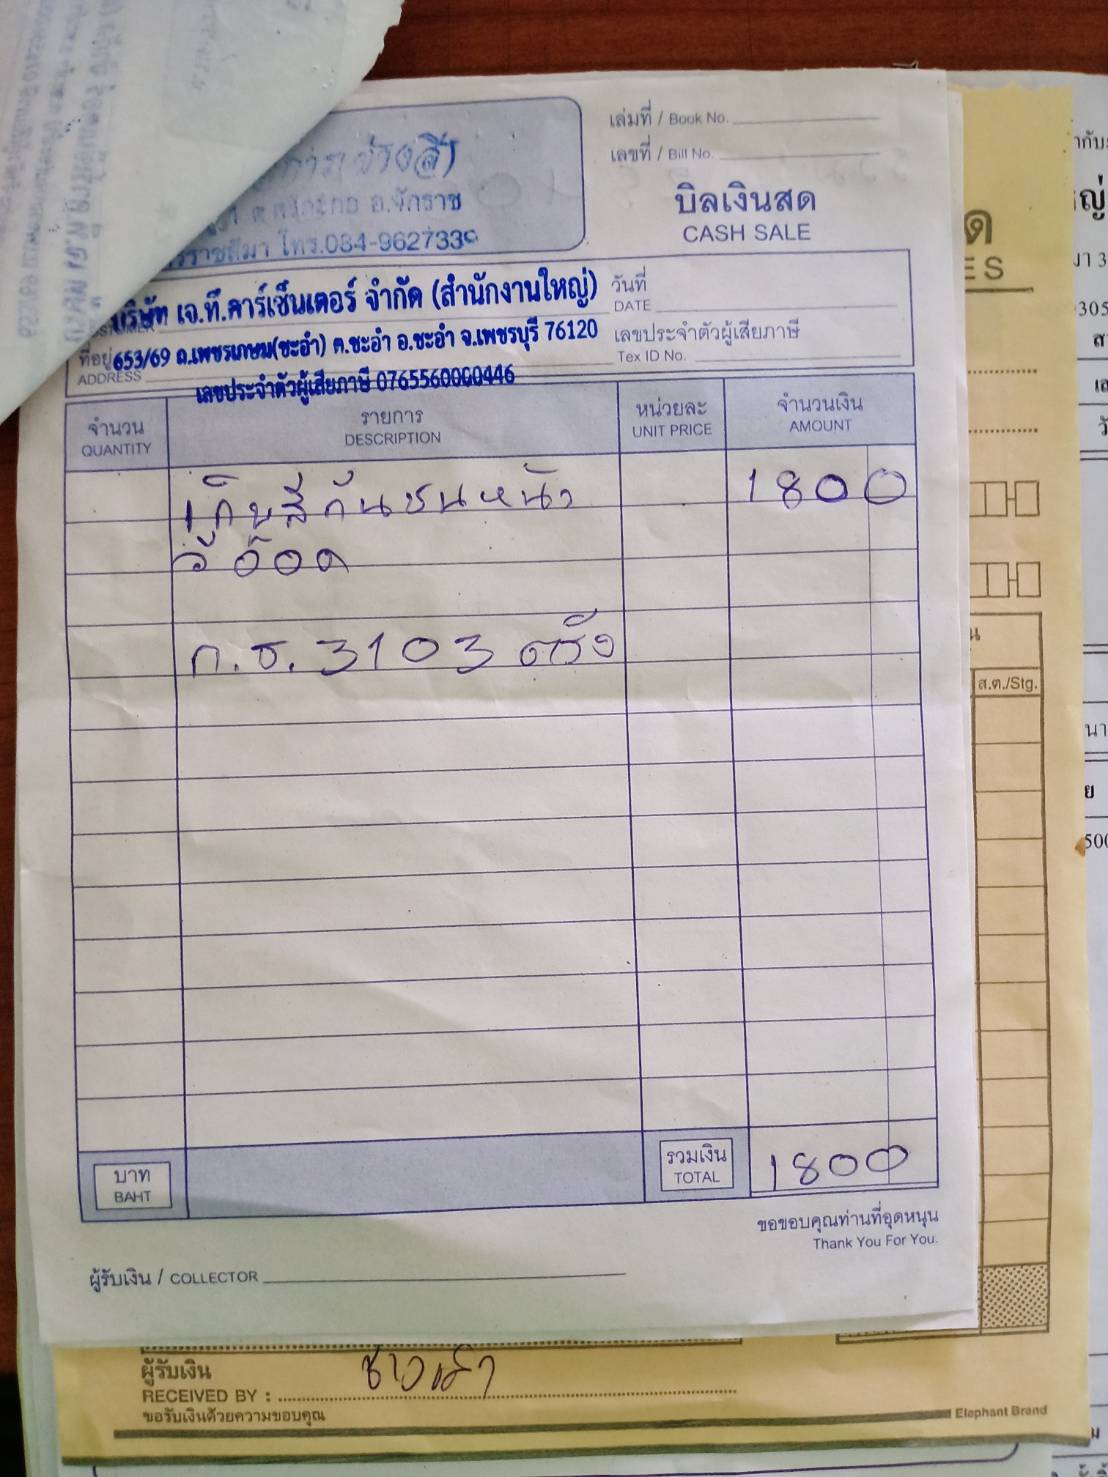 เล่มที่ / Book No.
เลขที่ / Bill No.
บิลเงินสด
CASH SALE
อ.จักราช
โทร.084-9627339
บริษัท เจ.ที.คาร์เซ็นเตอร์ จำกัด (สำนักงานใหญ่)
วันที่
DATE
ที่อยู่ 653/69 ถ.เพชรเกษม(ชะอำ) ต.ชะอำ อ.ชะอำ จ.เพชรบุรี 76120
ADDRESS
เลขประจำตัวผู้เสียภาษี
Tex ID No.
เลขประจำตัวผู้เสียภาษี 0765560000446
จำนวน รายการ หน่วยละ จำนวนเงิน
QUANTITY DESCRIPTION UNIT PRICE AMOUNT
เก็บสีกันชนหน้า 1800
วีออด
ก.ธ. 3103 ตรัง
บาท
BAHT
รวมเงิน
TOTAL
1800
ขอขอบคุณท่านที่อุดหนุน
Thank You For You.
ผู้รับเงิน / COLLECTOR
ส.ต./Stg.
ผู้รับเงิน
RECEIVED BY :
ขอรับเงินด้วยความขอบคุณ
Elephant Brand